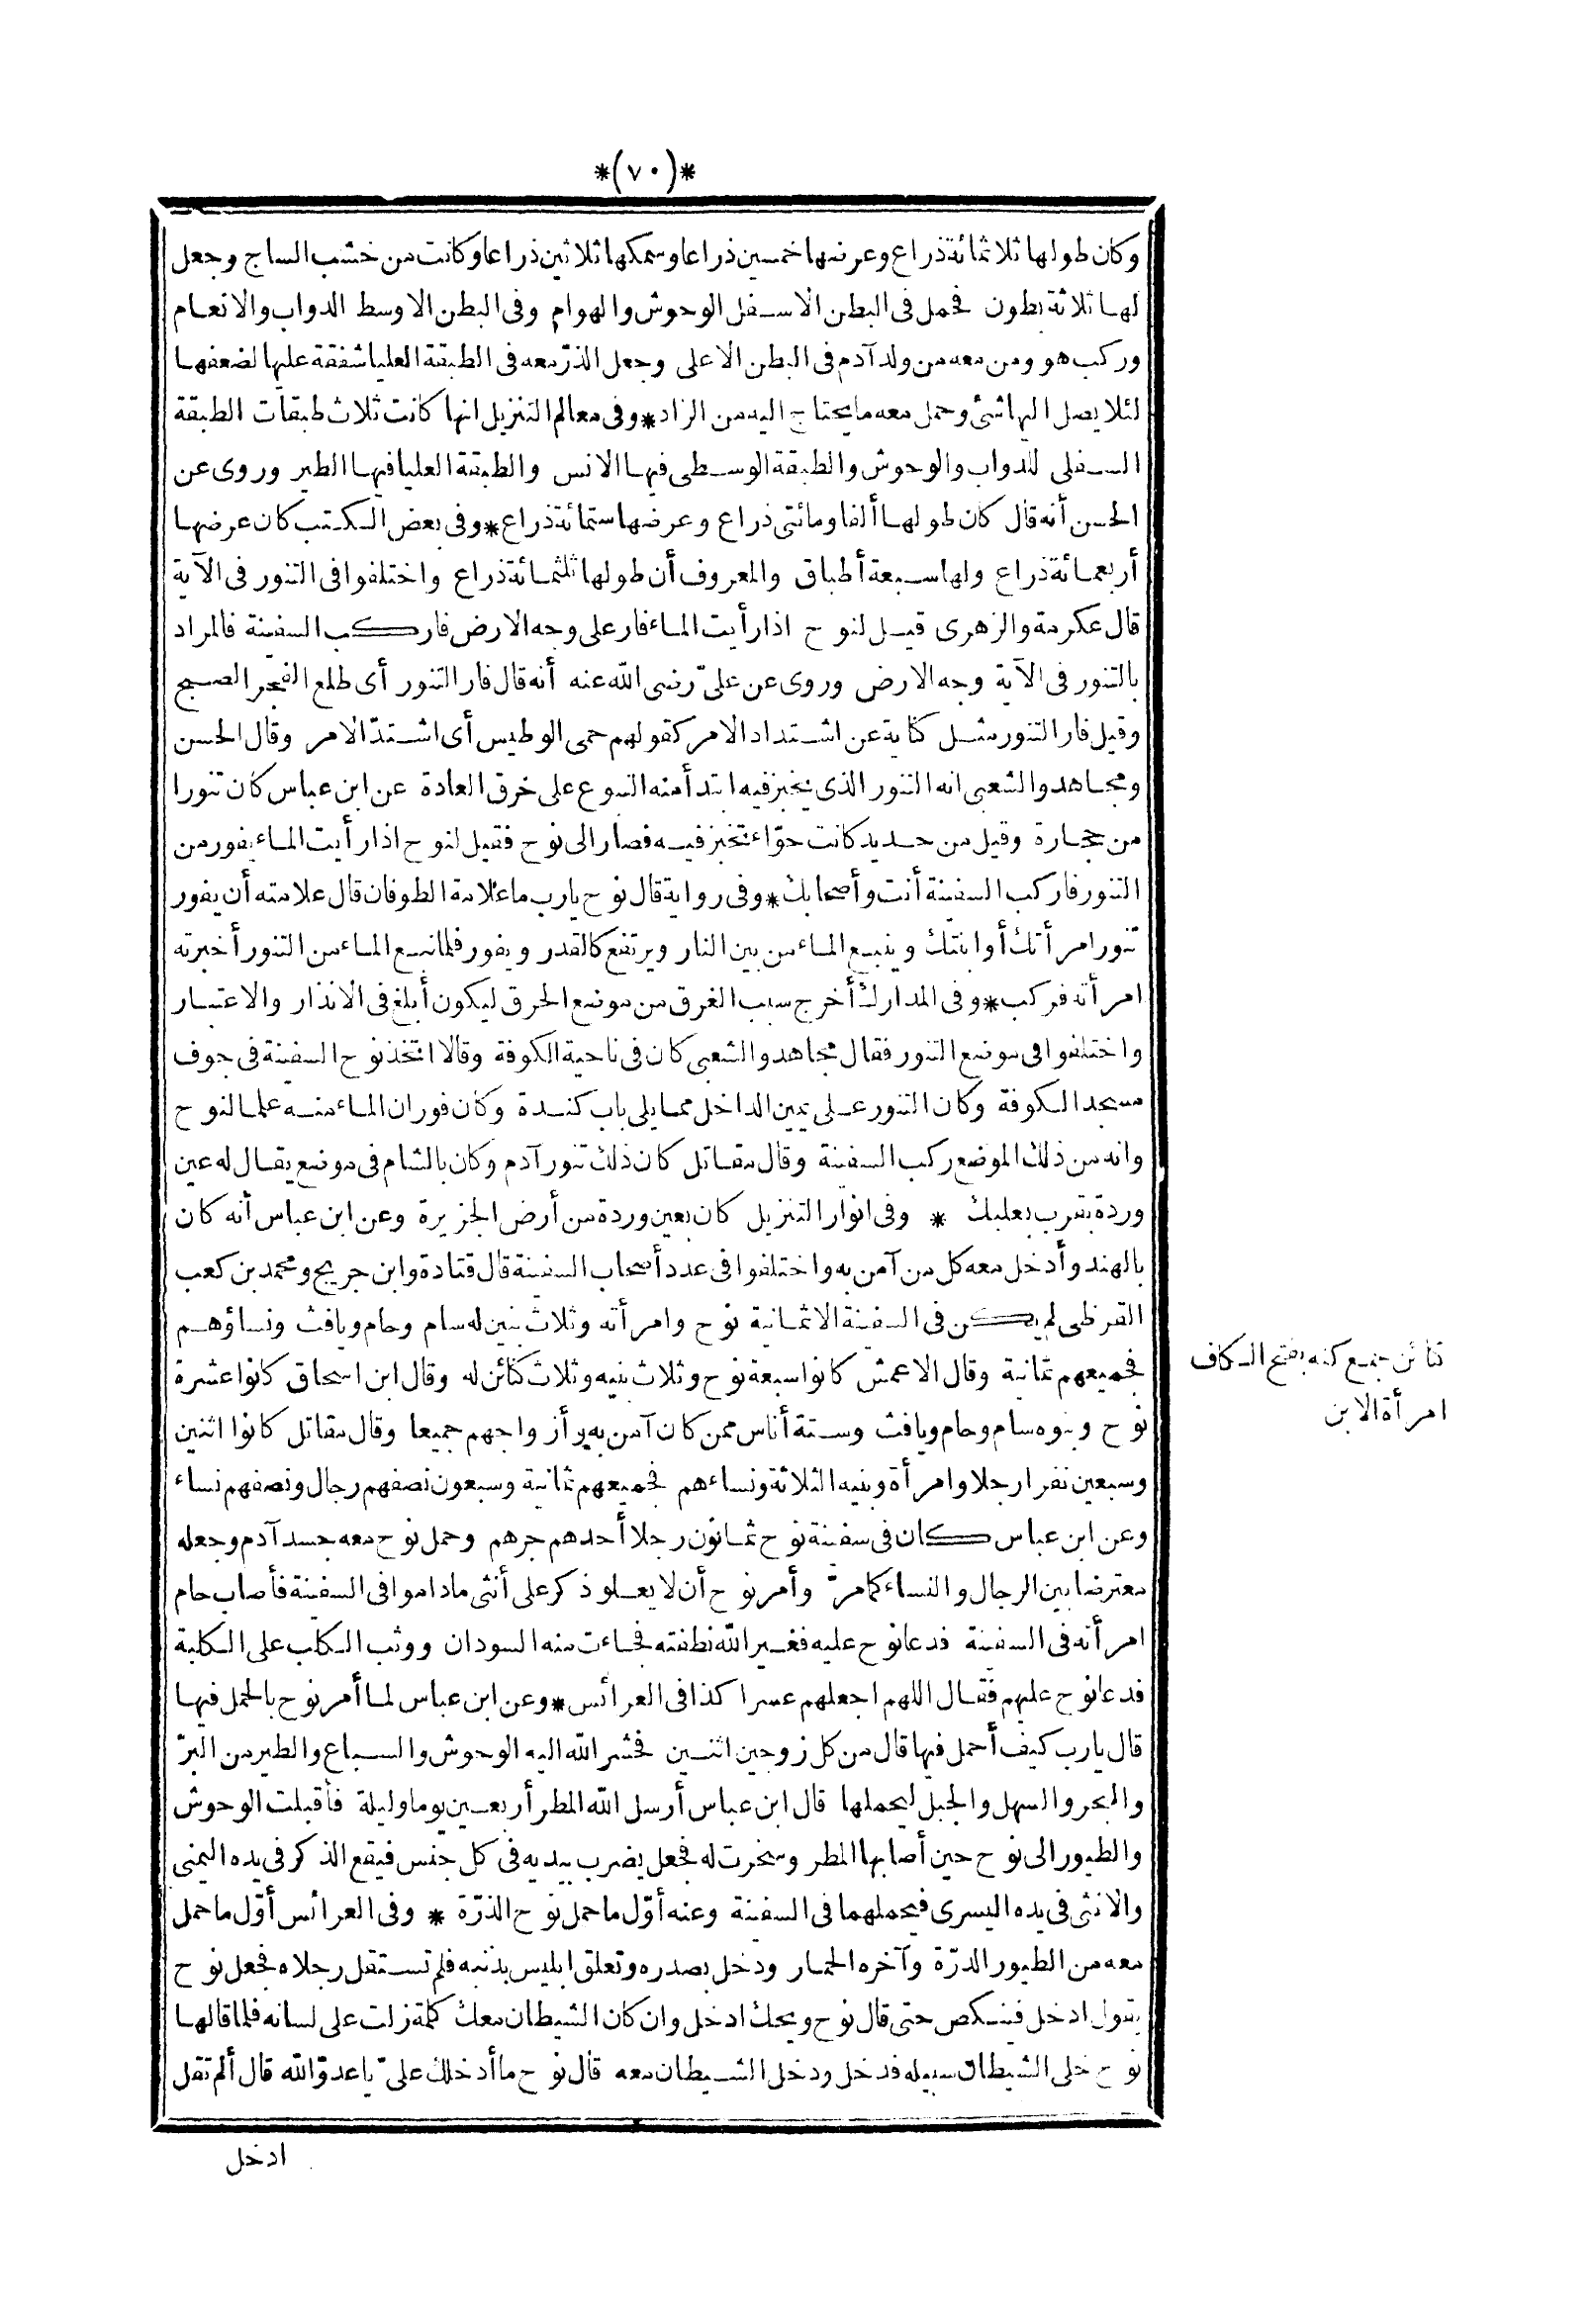 *(٧٠)*
وكان طولها ثلاثمائة ذراع وعرضها خمسين ذراعا وسمكها ثلاثين ذراعا وكانت من خشب الساج وجعل
لها ثلاثة بطون فحمل فى البطن الاسفل الوحوش والهوام وفى البطن الاوسط الدواب والانعام
وركب هو ومن معه من ولد آدم فى البطن الاعلى وجعل الذرّ معه فى الطبقة العليا شفقة عليها لضعفها
لئلا يصل اليها شئ وحمل معه ما يحتاج اليه من الزاد * وفى معالم التنزيل انها كانت ثلاث طبقات الطبقة
السفلى للدواب والوحوش والطبقة الوسطى فيها الانس والطبقة العليا فيها الطير وروى عن
الحسن أنه قال كان طولها ألفا ومائتى ذراع وعرضها ستمائة ذراع * وفى بعض الكتب كان عرضها
أربعمائة ذراع ولها سبعة أطباق والمعروف أن طولها ثلثمائة ذراع واختلفوا فى التنور فى الآية
قال عكرمة والزهرى قيل لنوح اذا رأيت الماء فار على وجه الارض فاركب السفينة فالمراد
بالتنور فى الآية وجه الارض وروى عن علىّ رضى الله عنه أنه قال فار التنور أى طلع الفجر الصبح
وقيل فار التنور مثل كناية عن اشتداد الامر كقولهم حمى الوطيس أى اشتدّ الامر وقال الحسن
ومجاهد والشعبى انه التنور الذى يخبز فيه ابتدأ منه النبوع على خرق العادة عن ابن عباس كان تنورا
من حجارة وقيل من حديد كانت حوّاء تخبز فيه فصار الى نوح فقيل لنوح اذا رأيت الماء يفور من
التنور فاركب السفينة أنت وأصحابك * وفى رواية قال نوح يارب ما علامة الطوفان قال علامته أن يفور
تنور امرأتك أو ابنتك وينبع الماء من بين النار ويرتفع كالقدر ويفور فلما نبع الماء من التنور أخبرته
امرأته فركب * وفى المدارك أخرج سبب الغرق من موضع الحرق ليكون أبلغ فى الانذار والاعتبار
واختلفوا فى موضع التنور فقال مجاهد والشعبى كان فى ناحية الكوفة وقالا اتخذ نوح السفينة فى جوف
مسجد الكوفة وكان التنور على يمين الداخل مما يلى باب كندة وكان فوران الماء منه علما لنوح
وانه من ذلك الموضع ركب السفينة وقال مقاتل كان ذلك تنور آدم وكان بالشام فى موضع يقال له عين
وردة بقرب بعلبك * وفى انوار التنزيل كان بعين وردة من أرض الجزيرة وعن ابن عباس أنه كان
بالهند وأدخل معه كل من آمن به واختلفوا فى عدد أصحاب السفينة قال قتادة وابن جريج ومحمد بن كعب
القرظى لم يكن فى السفينة الاثمانية نوح وامرأته وثلاث بنين له سام وحام ويافث ونساؤهم
فجميعهم ثمانية وقال الاعمش كانوا سبعة نوح وثلاث بنيه وثلاث كنائن له وقال ابن اسحاق كانوا عشرة
نوح وبنوه سام وحام ويافث وستة أناس ممن كان آمن به وأزواجهم جميعا وقال مقاتل كانوا اثنين
وسبعين نفرا رجلا وامرأة وبنيه الثلاثة ونساءهم فجميعهم ثمانية وسبعون نصفهم رجال ونصفهم نساء
وعن ابن عباس كان فى سفينة نوح ثمانون رجلا أحدهم جرهم وحمل نوح معه جسد آدم وجعله
معترضا بين الرجال والنساء كما مرّ وأمر نوح أن لا يعلو ذكر على أنثى ما داموا فى السفينة فأصاب حام
امرأته فى السفينة فدعا نوح عليه فغير الله نطفته فجاءت منه السودان ووثب الكلب على الكلبة
فدعا نوح عليهم فقال اللهم اجعلهم عسرا كذا فى العرائس * وعن ابن عباس لما أمر نوح بالحمل فيها
قال يارب كيف أحمل فيها قال من كل زوجين اثنين فحشر الله اليه الوحوش والسباع والطير من البرّ
والبحر والسهل والجبل ليحملها قال ابن عباس أرسل الله المطر أربعين يوما وليلة فأقبلت الوحوش
والطيور الى نوح حين أصابها المطر وسخرت له فجعل يضرب بيديه فى كل جنس فيقع الذكر فى يده اليمنى
والانثى فى يده اليسرى فيحملهما فى السفينة وعنه أوّل ما حمل نوح الذرّة * وفى العرائس أوّل ما حمل
معه من الطيور الدرّة وآخره الحمار ودخل بصدره وتعلق ابليس بذنبه فلم تستقل رجلاه فجعل نوح
يقول ادخل فينكص حتى قال نوح ويحك ادخل وان كان الشيطان معك كلمة زلت على لسانه فلما قالها
نوح خلى الشيطان سبيله فدخل ودخل الشيطان معه قال نوح ما أدخلك علىّ يا عدوّ الله قال ألم تقل
كنائن جمع كنه بفتح الكاف
امرأة الابن
ادخل